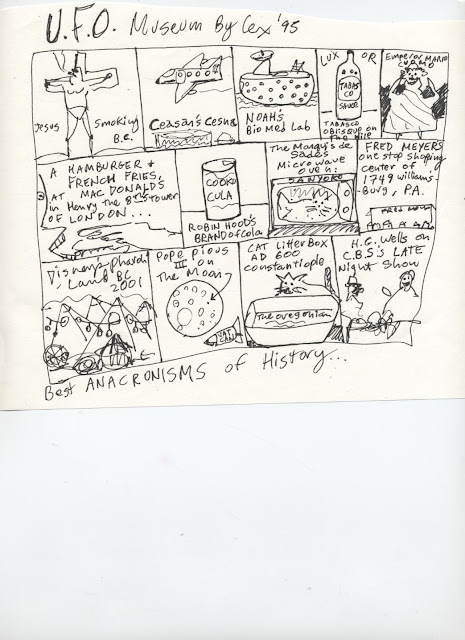 U.F.O. Museum By Cex '95
Jesus
Smoking
B.C.
Ceasar's Cesna
NOAH'S
Bio Med Lab
LUX OR
TABAS
CO
SAUCE
TABASCO
OBILISQUE on
the Nile
Emperor MARIO
CUOMO
A HAMBURGER &
FRENCH FRIES,
AT MAC DONALDS
in Henry the 8th's tower
OF LONDON...
COOKO
CULA
ROBIN HOOD'S
BRAND of Cola
The Marquis de
Sade's
Microwave
oven:
SANYOKO
FRED MEYER'S
one stop shoping
center of
1749 williams-
Burg, PA.
FRED
Disney's pharoh
Land BC
2001
Pope Pious
III on
The Moon
VAT
CAN
CAT LitterBox
AD 600
Constantiople
The oregonian
H.G. Wells on
C.B.S's LATE
Night Show
Best ANACRONISMS of History...